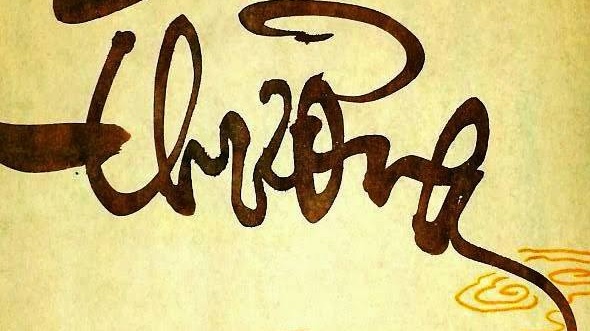 Thương